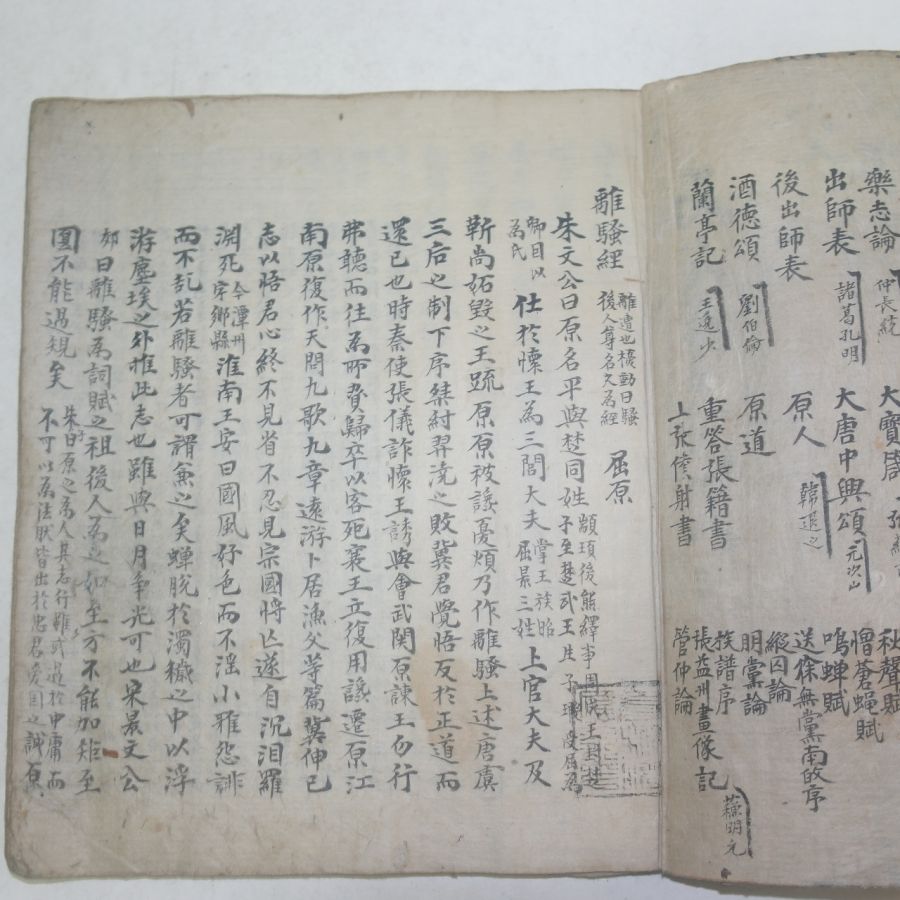 樂志論 仲長統
出師表 諸葛孔明
後出師表
酒德頌 劉伯倫
蘭亭記 王逸少
大寶箴 張
大唐中興頌 元次山
原人 韓退之
原道
重答張籍書
上張僕射書
秋聲賦
憎蒼蝇賦
鳴蝉賦
送徐無黨南敀序
縱囚論
朋黨論
族譜序
張益州畫像記 蘇明允
管仲論
離騷經 離遭也擾動曰騷後人尊名之為經 屈原
朱文公曰原名平與楚同姓 顓頊後熊繹事周成王封楚子至楚武王生子瑕受屈為
卿因以為氏 仕於懷王為三閭大夫 掌王族昭屈景三姓 上官大夫及
靳尚妬毀之王疏原原被讒憂煩乃作離騷上述唐虞
三后之制下序桀紂羿澆之敗冀君覺悟反於正道而
還己也時秦使張儀詐懷王誘與會武関原諫王勿行
弗聽而往為所脅歸卒以客死襄王立復用讒遷原江
南原復作天問九歌九章遠游卜居漁父等篇冀伸己
志以悟君心終不見省不忍見宗國將亡遂自沉汨羅
淵死 今潭州寧鄉縣 淮南王安曰國風好色而不淫小雅怨誹
而不乱若離騷者可謂兼之矣蟬脫於濁穢之中以浮
游塵埃之外推此志也雖與日月爭光可也宋景文公
郊曰離騷為詞賦之祖後人為之如至方不能加矩至
圓不能過規矣 朱子曰原之為人其志行雖或過於中庸而不可以為法然皆出於忠君愛国之誠原